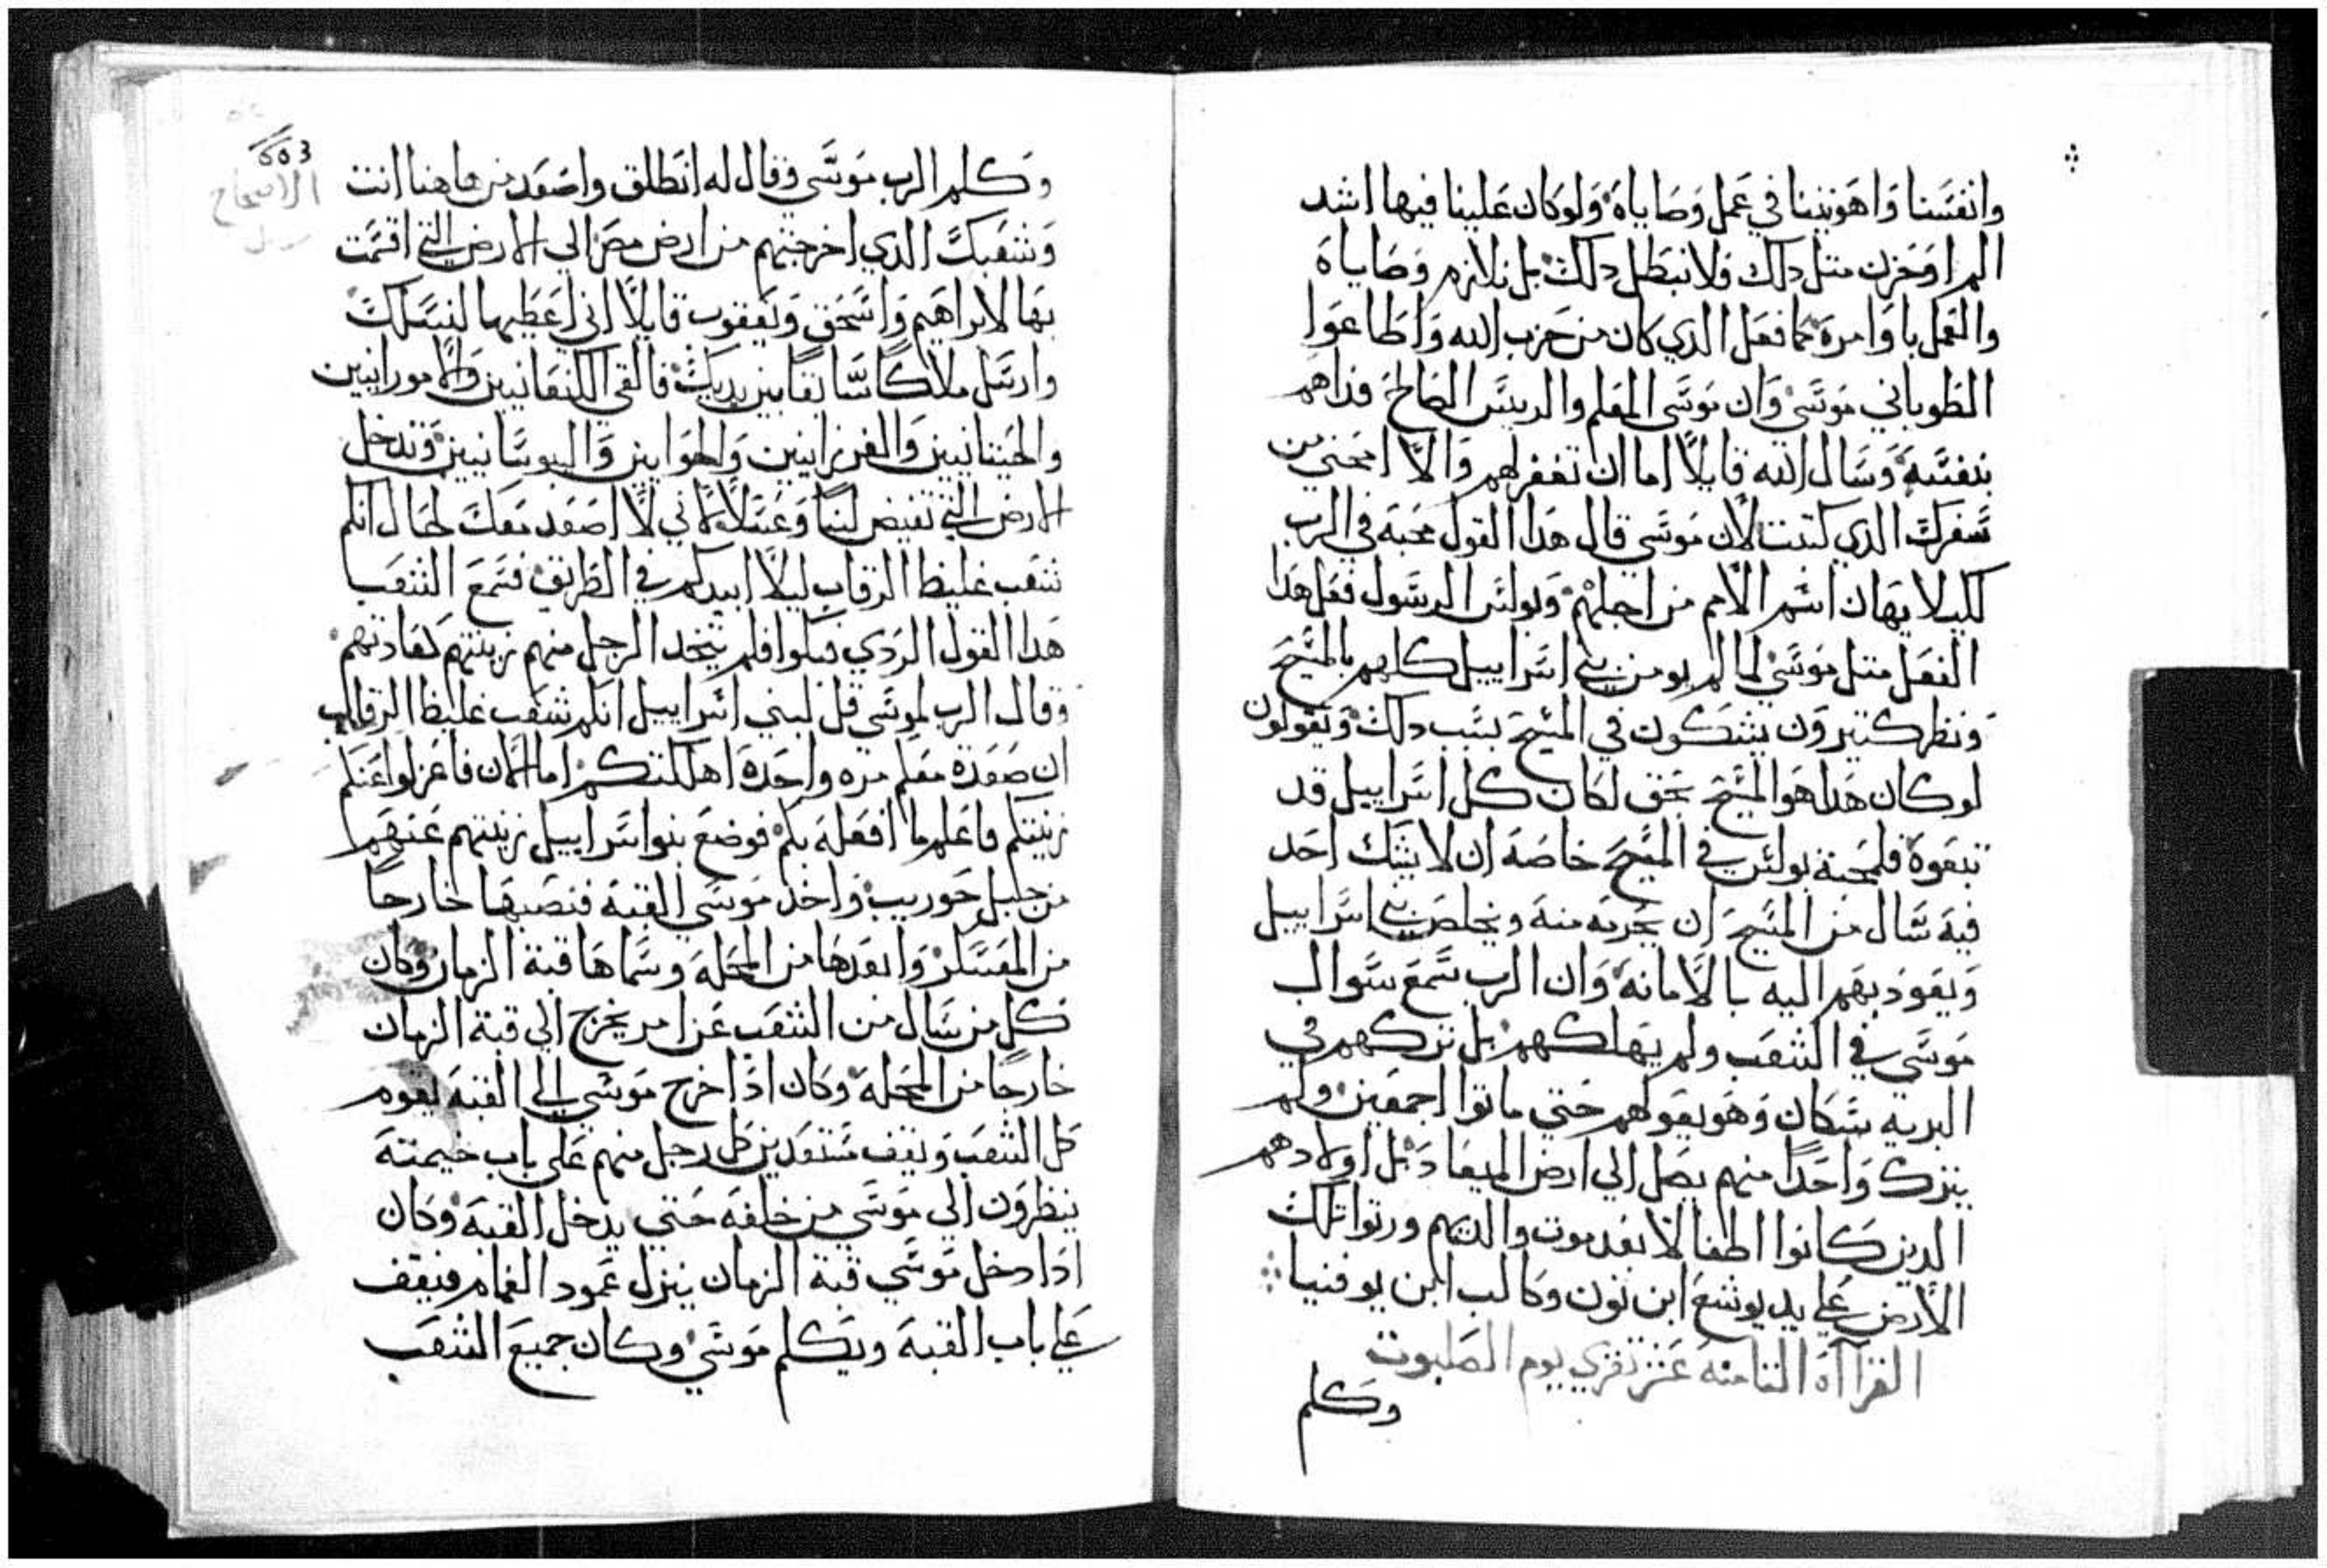 وانفسنا واهويتنا في عمل وصاياه ولو كان علينا فيها اشد
الم او حزن متل دلك فلا نبطل دلك بل نلازم وصاياه
والعمل باوامره كما فعل الدي كان من حزب الله واطاعوا
الطوباني موسي وان موسي المعلم والريس الصالح فداهم
بنفسه وسال الله قايلاً اما ان تغفر لهم والا امحني من
سفرك الدي كتبت لان موسي قال هدا القول محبه في الرب
لكيلا يهان اسم الامم من اجلهم وبولس الرسول فعل هدا
الفعل متل موسي لما لم يومن بني اسراييل كلهم بالمسيح
ونظر كتيرون يشكون في المسيح بسبب دلك ويقولون
لو كان هدا هو المسيح بحق لكان كل اسراييل قد
تبعوه فلمحبة بولس في المسيح خاصه ان لا يشك احد
فيه سال من المسيح ان يحرمه منه ويخلص بني اسراييل
ويعود بهم اليه بالامانه وان الرب سمع سوال
موسي في الشعب ولم يهلكهم بل تركهم في
البريه سكان وهو يعولهم حتي ماتوا اجمعين ولم
يترك واحداً منهم يصل الي ارض الميعاد بل اولادهم
الدين كانوا اطفالا بعد موت والديهم ورتوا تلك
الارض علي يد يوشع ابن نون وكالب ابن يوفنيا
القرااه التامنه عشر تقري يوم الصلبوت
وكلم
603
الاصحاح
وكلم الرب موسي وقال له انطلق واصعد من هاهنا انت
وشعبك الدي اخرجتهم من ارض مصر الي الارض التي اقسمت
بها لابراهيم واسحق ويعقوب قايلاً اني اعطيها لنسلك
وارسل ملاكاً سابقاً بين يديك فالقي الكنعانيين والامورانيين
والحيتانيين والفرزانيين والحوايين واليبوسانيين وتدخل
الارض التي تفيض لبناً وعسلاً لاني لا اصعد معك لحال انكم
شعب غليظ الرقاب ليلا ابيدكم في الطريق فسمع الشعب
هدا القول الردي فبكوا فلم يتخد الرجل منهم زينتهم كعادتهم
وقال الرب لموسي قل لبني اسراييل انكم شعب غليظ الرقاب
ان صعدة معكم مره واحدة اهلكتكم اما الان فاعزلوا عنكم
زينتكم فاعلم ما افعله بكم فوضع بنوا اسراييل زينتهم عنهم
من جبل حوريب واخد موسي القبه فنصبها خارجاً
من المعسكر وابعدها من المحله وسماها قبة الزمان وكان
كل من سال من الشعب عن امر يخرج الي قبة الزمان
خارجاً من المحله وكان ادا خرج موسي الي القبه يقوم
كل الشعب ويقف مستعدين كل رجل منهم علي باب خيمته
ينظرون الي موسي من خلفه حتي يدخل القبه وكان
ادا دخل موسي قبة الزمان ينزل عمود الغمام فيقف
علي باب القبه ويكلم موسي وكان جميع الشعب